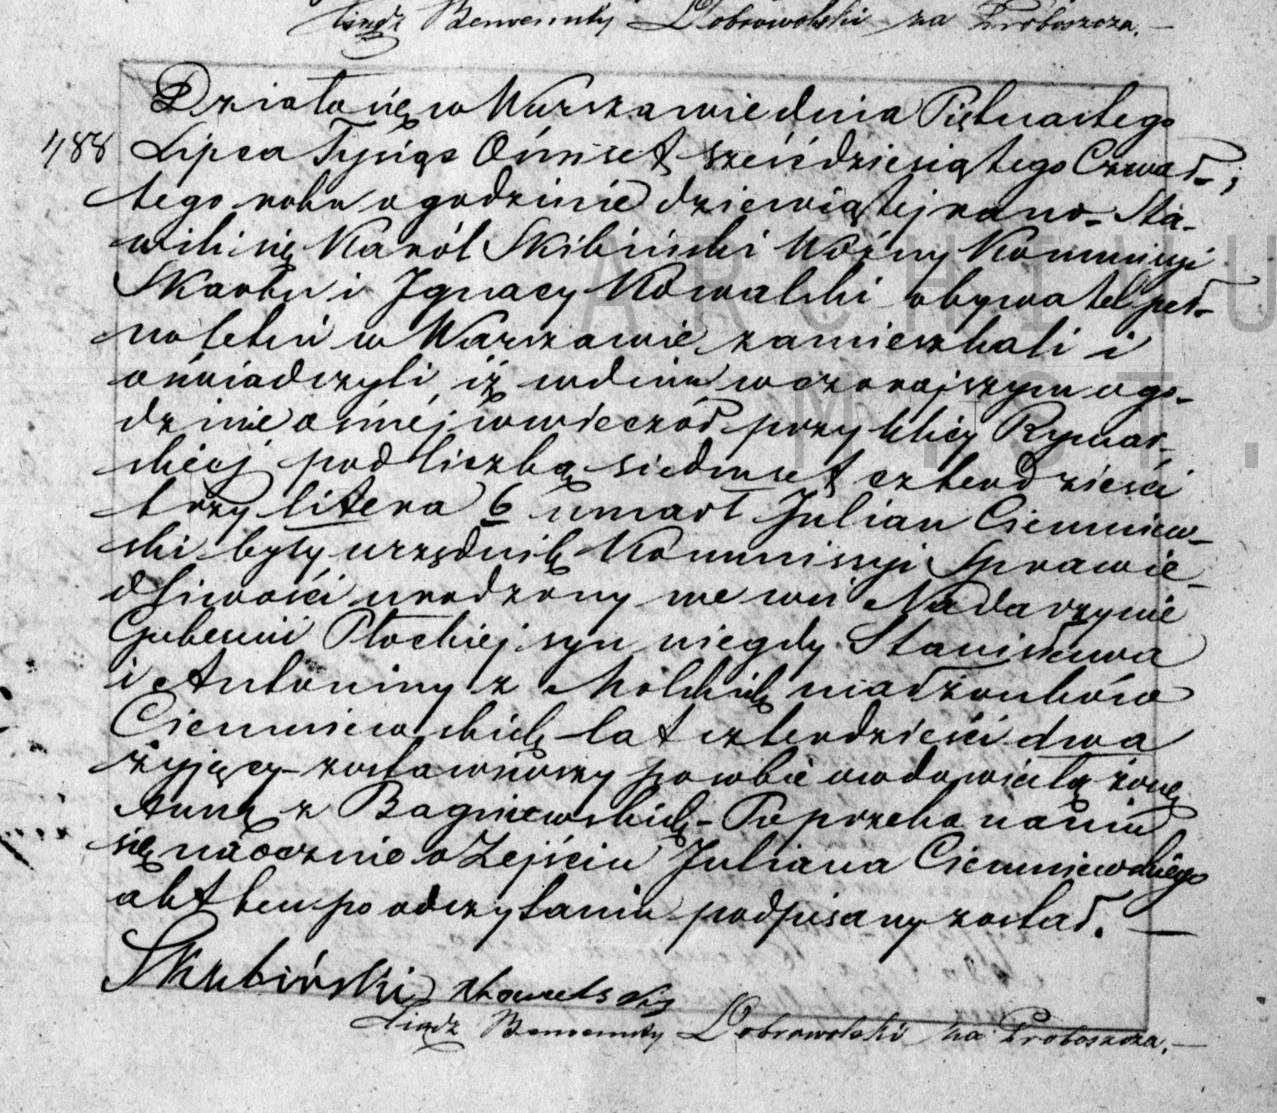 Ksiądz Benvenuty Dobrowolski za Proboszcza. —
Działo się w Warszawie dnia Piętnastego
488 Lipca Tysiąc Ośmset sześćdziesiątego Czwar-
tego roku o godzinie dziewiątej rano. Sta-
wili się Karól Skibiński Woźny Kommissyi
Skarbu i Ignacy Kowalski obywatel peł-
noletni w Warszawie zamieszkali i
oświadczyli iż w dniu wczorajszym o go-
dzinie osmej wieczór przy ulicy Rymar-
skiej pod liczbą siedmset czterdzieści
trzy litera 6 umarł Julian Ciemniew-
ski były urzędnik Kommissyi Sprawie-
dliwości urodzony we wsi Nadarzynie
Gubernii Płockiej syn niegdy Stanisława
i Antoniny z Molskich małżonków
Ciemniewskich lat czterdzieści dwa
żyjący zostawiwszy po sobie owdowiałą żonę
Annę z Bagniewskich - Po przekonaniu
się naocznie o Zejściu Juliana Ciemniewskiego
akt ten po odczytaniu podpisany został. —
Skibiński Kowalski
Ksiądz Benvenuty Dobrowolski za Proboszcza. —
ARCHIWU
M ST.